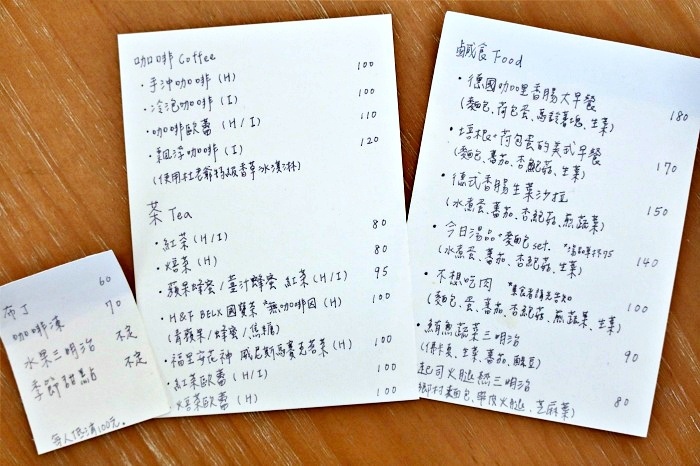 咖啡 Coffee
・手沖咖啡 (H) 100
・冷泡咖啡 (I) 100
・咖啡歐蕾 (H/I) 110
・飄浮咖啡 (I) 120
(使用杜老爺特級香草冰淇淋)
茶 Tea
・紅茶 (H/I) 80
・焙茶 (H) 80
・蘋果蜂蜜/薑汁蜂蜜 紅茶 (H/I) 95
・H&F BELX 國寶茶 *無咖啡因 (H) 100
(青蘋果/蜂蜜/焦糖)
・福里安花神 威尼斯馬賽克茗茶 (H) 100
・紅茶歐蕾 (H/I) 100
・焙茶歐蕾 (H) 100
鹹食 Food
・德國咖哩香腸大早餐 180
(麵包、荷包蛋、馬鈴薯塊、生菜)
・培根+荷包蛋的美式早餐 170
(麵包、蕃茄、杏鮑菇、生菜)
・德式香腸生菜沙拉 150
(水煮蛋、蕃茄、杏鮑菇、煎蔬菜)
・今日湯品*麵包 set. 140
(水煮蛋、蕃茄、杏鮑菇、生菜)
・不想吃肉 *素食者請先告知 100
(麵包、蛋、蕃茄、杏鮑菇、煎蔬果、生菜)
・鮪魚蔬菜三明治 90
生菜、蕃茄、酸豆)
起司火腿熱三明治 80
鄉村麵包、火腿、芝麻葉)
布丁 60
咖啡凍 70
水果三明治 不定
季節甜點 不定
每人低消100元。